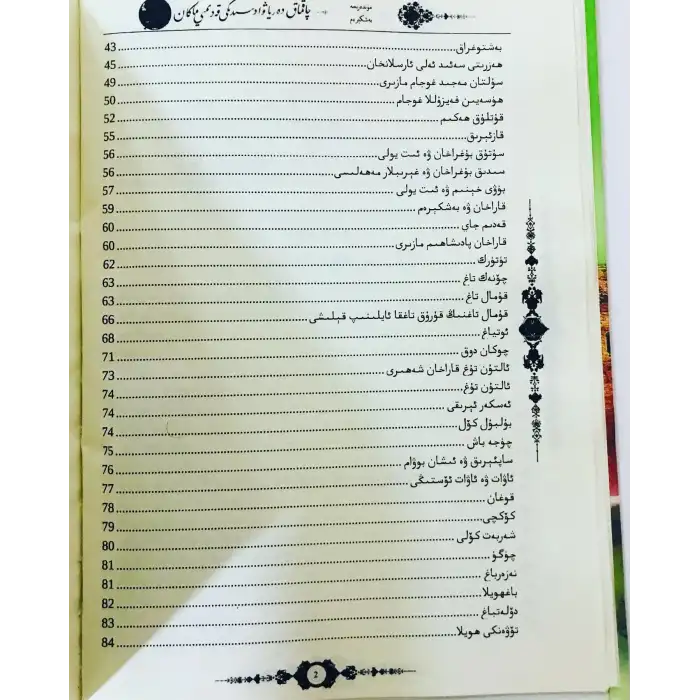 چاقماق دەرياۋادىسىدىكى قەدىمىي ماكان
مۇندەرىجە
بەشكېرەم
بەشتوغراق 43
ھەزرىتى سەئىد ئەلى ئارسلانخان 45
سۇلتان مەجىد غوجام مازىرى 49
ھۈسەيىن فەيزۇللا غوجام 50
قۇتلۇق ھەكىم 52
قازئېرىق 55
سۇتۇق بۇغراخان ۋە ئىت يولى 56
سىدىق بۇغراخان ۋە غېرىبلار مەھەللىسى 56
بۈۋى خېنىم ۋە ئىت يولى 57
قاراخان ۋە بەشكېرەم 59
قەدىم جاي 60
قاراخان پادىشاھىم مازىرى 60
تۈتۈرك 62
چۆنەك تاغ 63
قۇمال تاغ 63
قۇمال تاغنىڭ قۇرۇق تاغقا ئايلىنىپ قېلىشى 66
ئوتياغ 68
چوكان دوق 71
ئالتۇن تۇغ قاراخان شەھىرى 73
ئالتۇن تۇغ 74
ئەسكەر ئېرىقى 74
بۇلبۇل كۆل 74
چۈجە باش 75
سايئېرىق ۋە ئىشان بوۋام 76
ئاۋات ۋە ئاۋات ئۆستىڭى 77
قوغان 78
كۆكچى 79
شەربەت كۆلى 80
چۈگۈ 81
نەزەرباغ 81
باغھويلا 82
دۆلەتباغ 83
تۆۋەنكى ھويلا 84
2